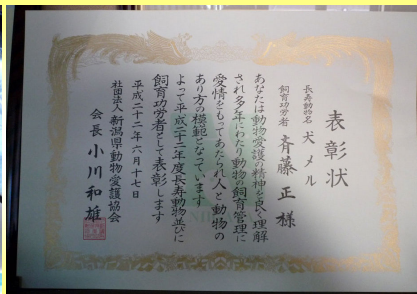 表彰状
長寿動物名 犬 メル
飼育功労者 斉藤 正 様
あなたは動物愛護の精神を良く理解
され多年にわたり動物の飼育管理に
愛情をもってあたられ人と動物の
あり方の模範となっています
よって平成二十二年度長寿動物並びに
飼育功労者として表彰します
平成二十二年六月十七日
社団法人 新潟県動物愛護協会
会長 小川和雄